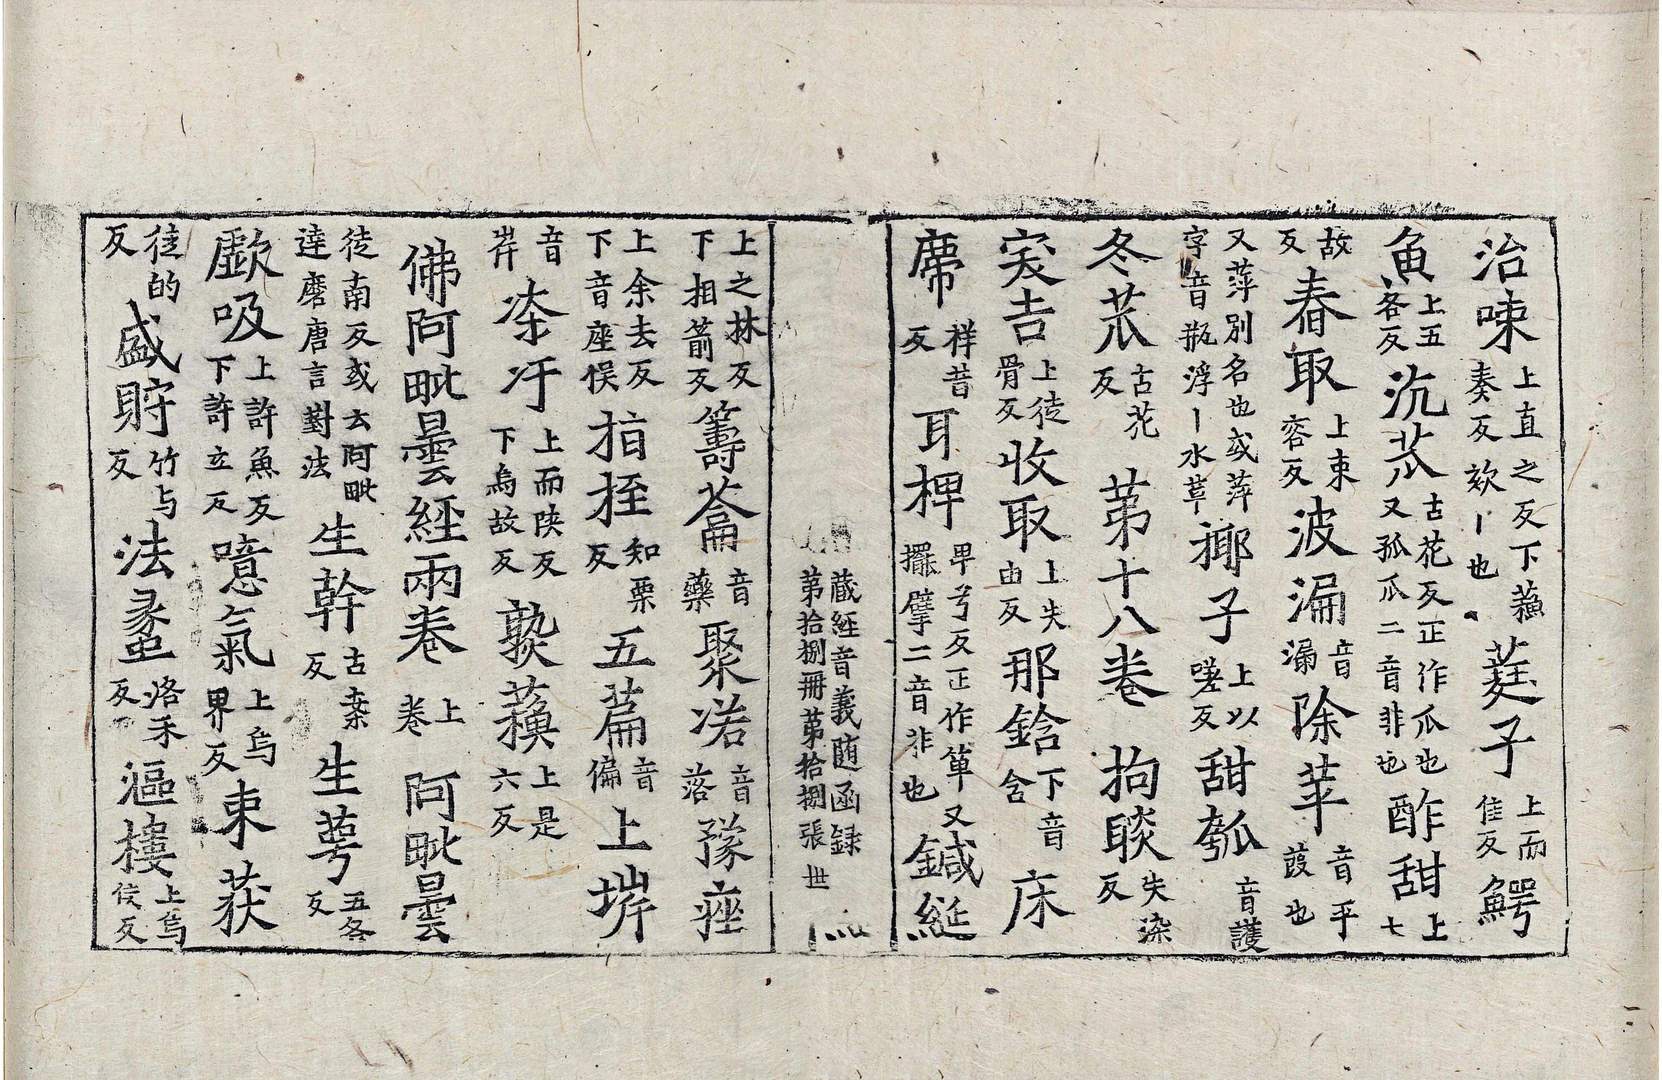 治㖨上直之反下蘓奏反欬丨也莛子上而佳反鰐
魚上五各反沉苽古花反正作瓜也又孤瓜二音非也酢甜上七
故反舂取上束容反波漏音漏除苹音平葭也
又萍別名也或萍字音瓶浮丨水草椰子上以嗟反甜瓠音護
冬苽古花反第十八卷拘睒失染反
突吉上徒骨反收取上失由反那鋡下音含床
席祥昔反耳椑卑芳反正作箄又擺擘二音非也鍼綖
藏經音義隨函録
第拾捌冊第拾捌張世
上之林反下相箭反籌䈅音藥聚洛音落豫痤
上余去反下音座悮指挃知栗反五萹音偏上㘷
音岸下烏故反上而陝反是六反
佛阿毗曇經兩卷上卷阿毗曇
徒南反或云阿毗達磨唐言對法生幹古案反生萼五各反
歔吸上許魚反下許立反噫氣上烏界反束荻
徒的反盛貯竹与反法蠡洛禾反漚樓上烏侯反